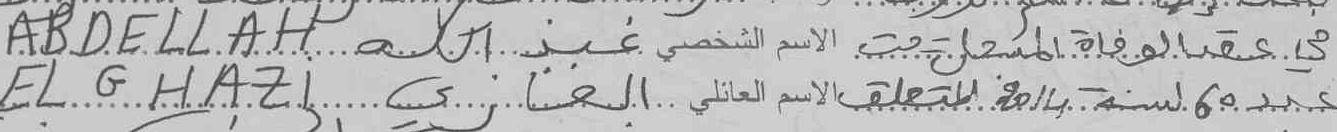 في عقد الوفاة المسجل تحت الاسم الشخصي عبد الله ABDELLAH
عدد 60 لسنة 2014 المتعلق الاسم العائلي الغازي EL GHAZI